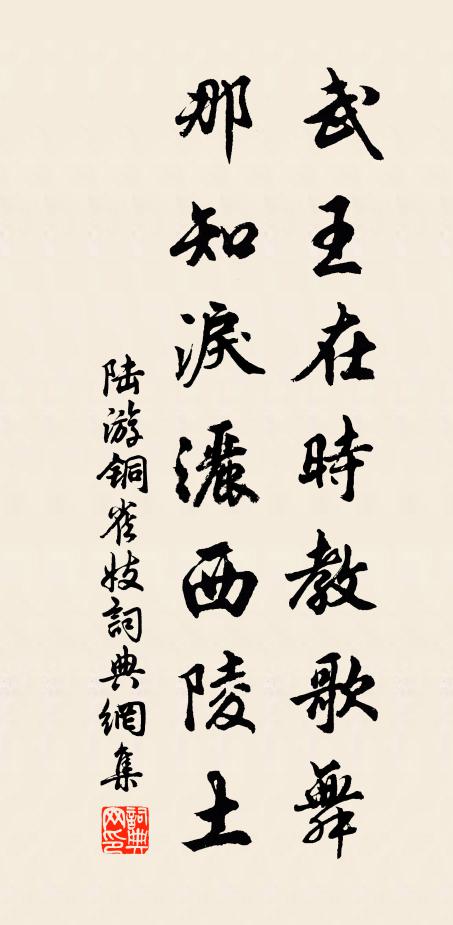 武王在時教歌舞
那知淚灑西陵土
陆游铜雀妓詞典網集
詞典网印